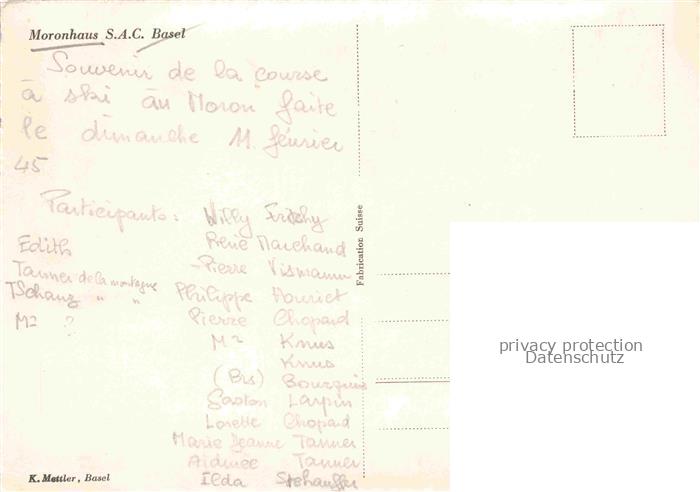 Moronhaus S.A.C. Basel
Souvenir de la course
à ski au Moron faite
le dimanche 11. février
45
Participants : Willy
René Marchand
Pierre Vismann
Philippe Mouriet
Pierre Chopard
Mr Knus
Knus
(Brs) Bourquin
Gaston Larpin
Lorette Chopard
Marie Jeanne Tanner
Aidmée Tanner
Ilda Stehauffer
Edith
Tanner de la montagne
Tschanz " "
Mr ?
Fabrication Suisse
K. Mettler, Basel
privacy protection
Datenschutz